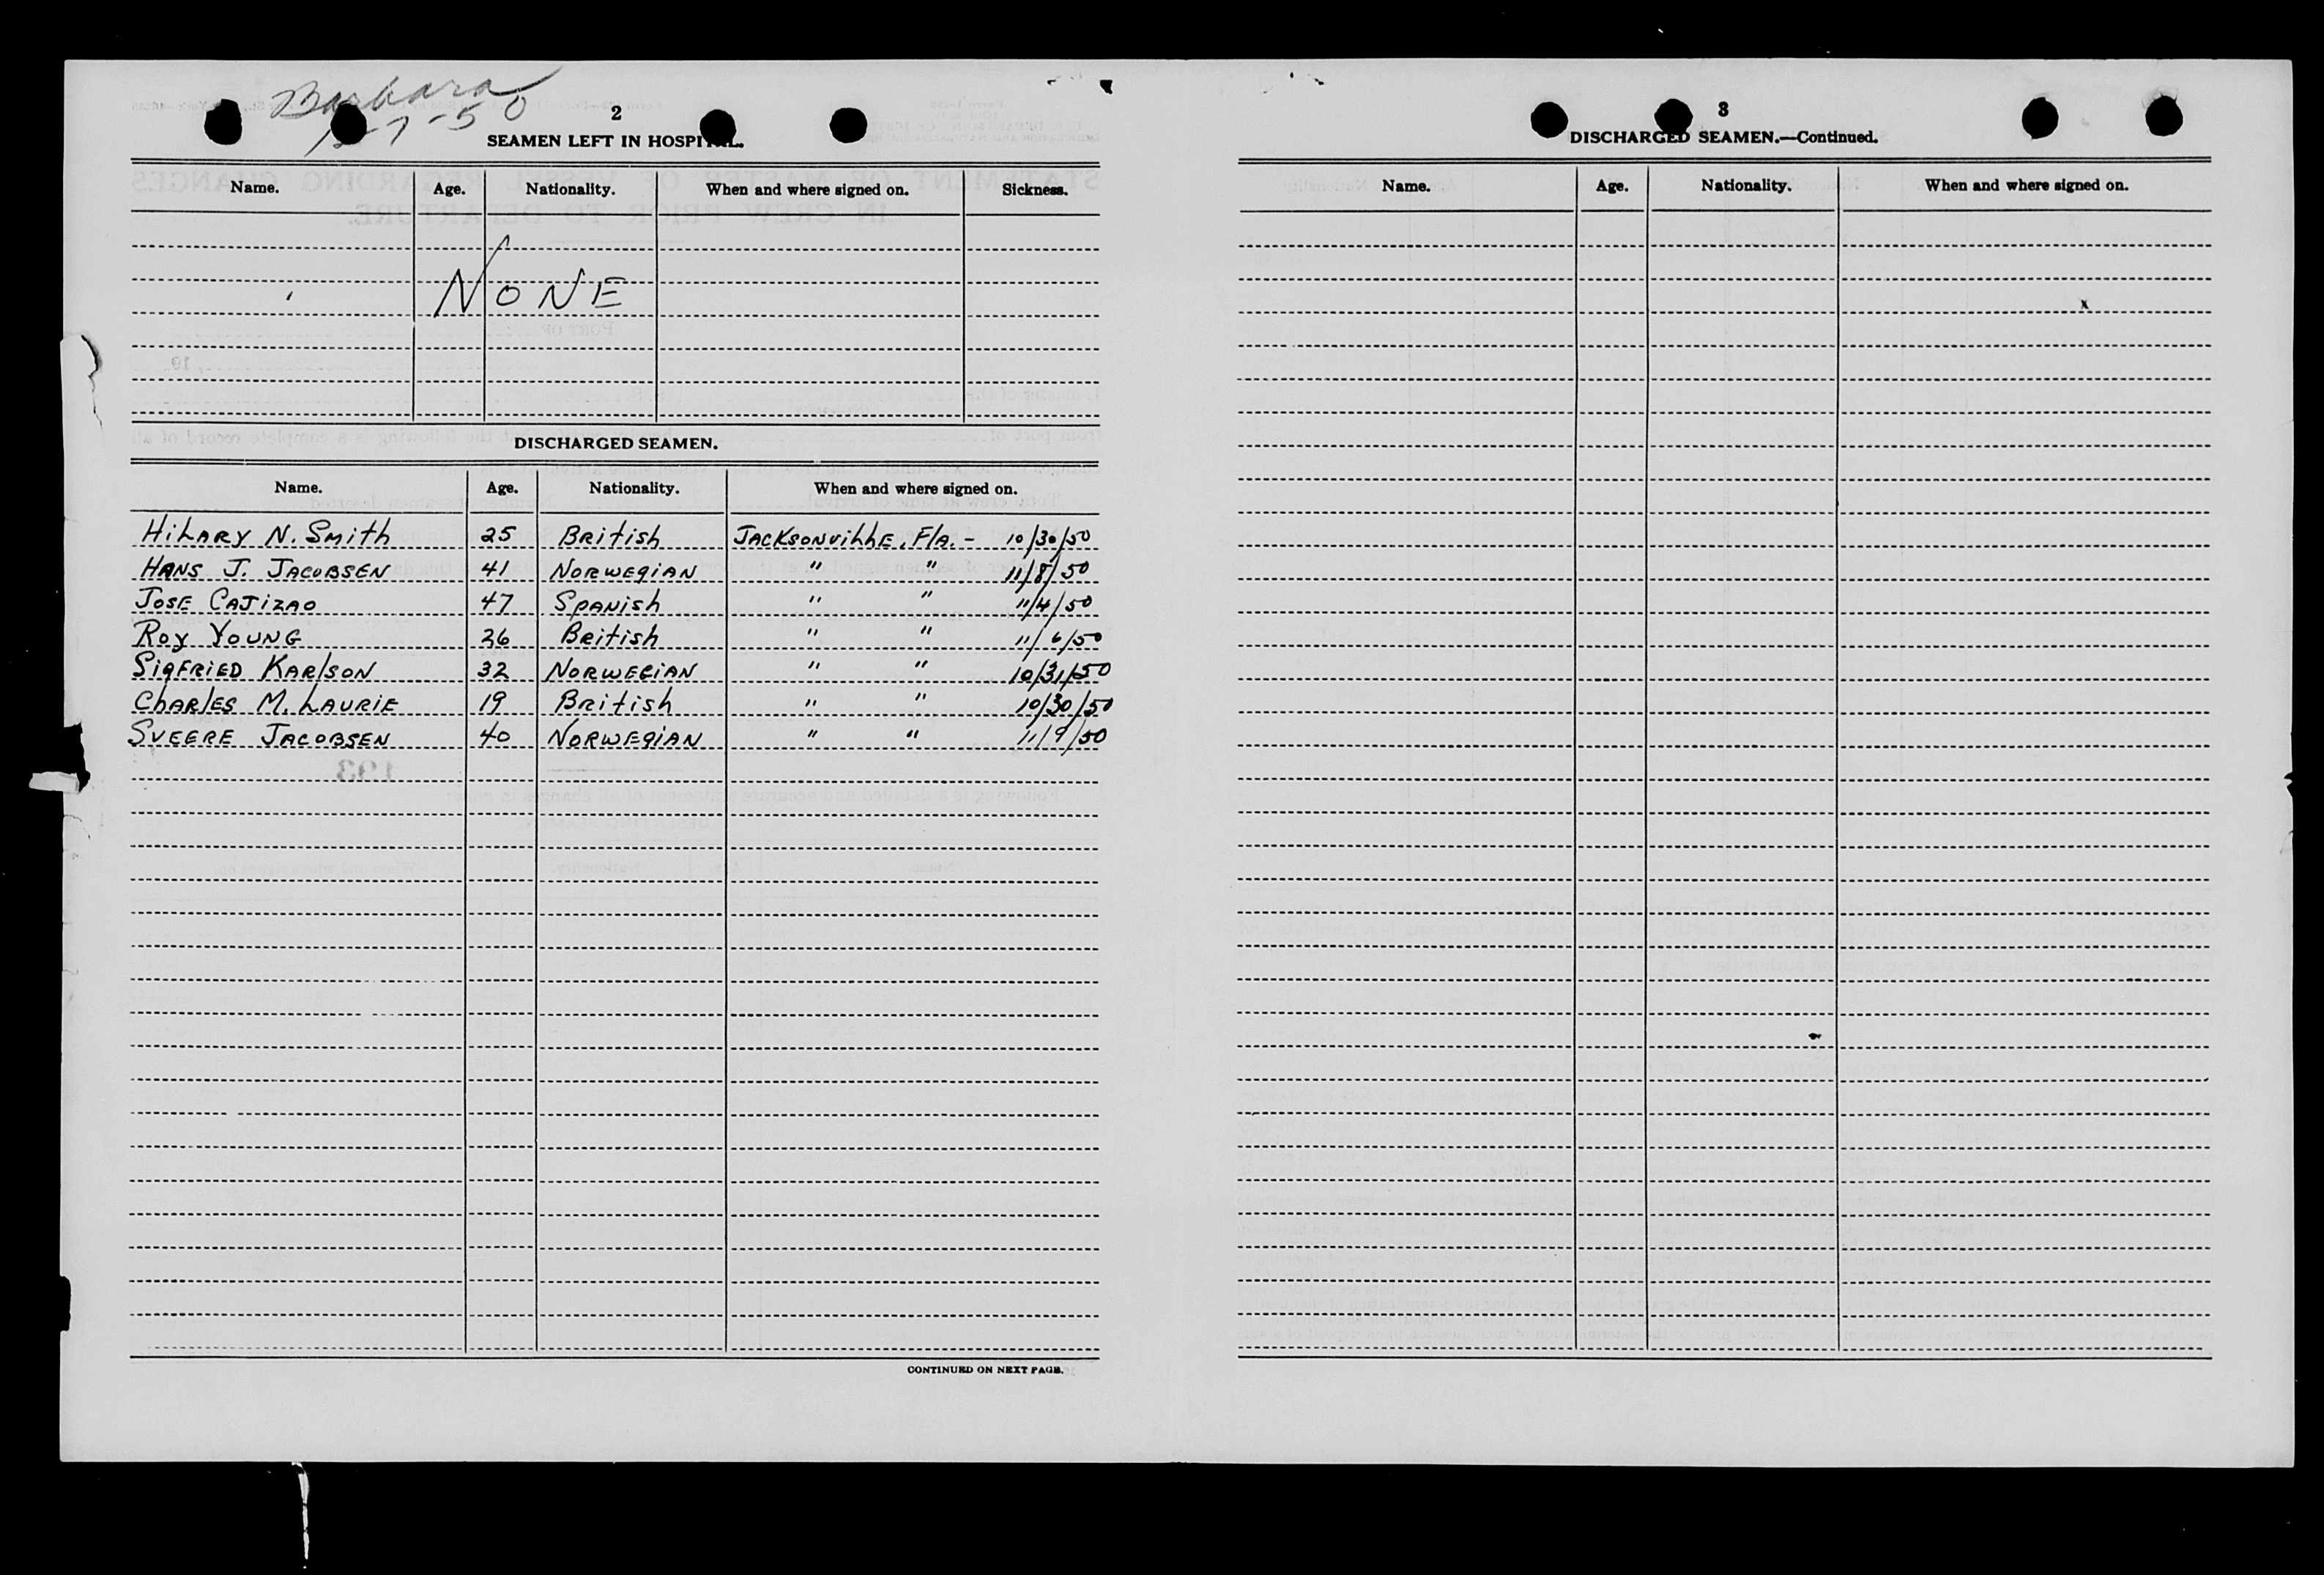 Barbara
-7-50
2
SEAMEN LEFT IN HOSPITAL.
Name. Age. Nationality. When and where signed on. Sickness.
NONE
DISCHARGED SEAMEN.
Name. Age. Nationality. When and where signed on.
Hilary N. Smith 25 British Jacksonville, Fla. - 10/30/50
Hans J. Jacobsen 41 Norwegian " " 11/8/50
Jose Cajizao 47 Spanish " " 11/4/50
Roy Young 26 British " " 11/6/50
Sigfried Karlson 32 Norwegian " " 10/31/50
Charles M. Laurie 19 British " " 10/30/50
Sveere Jacobsen 40 Norwegian " " 11/9/50
CONTINUED ON NEXT PAGE.
3
DISCHARGED SEAMEN.—Continued.
Name. Age. Nationality. When and where signed on.